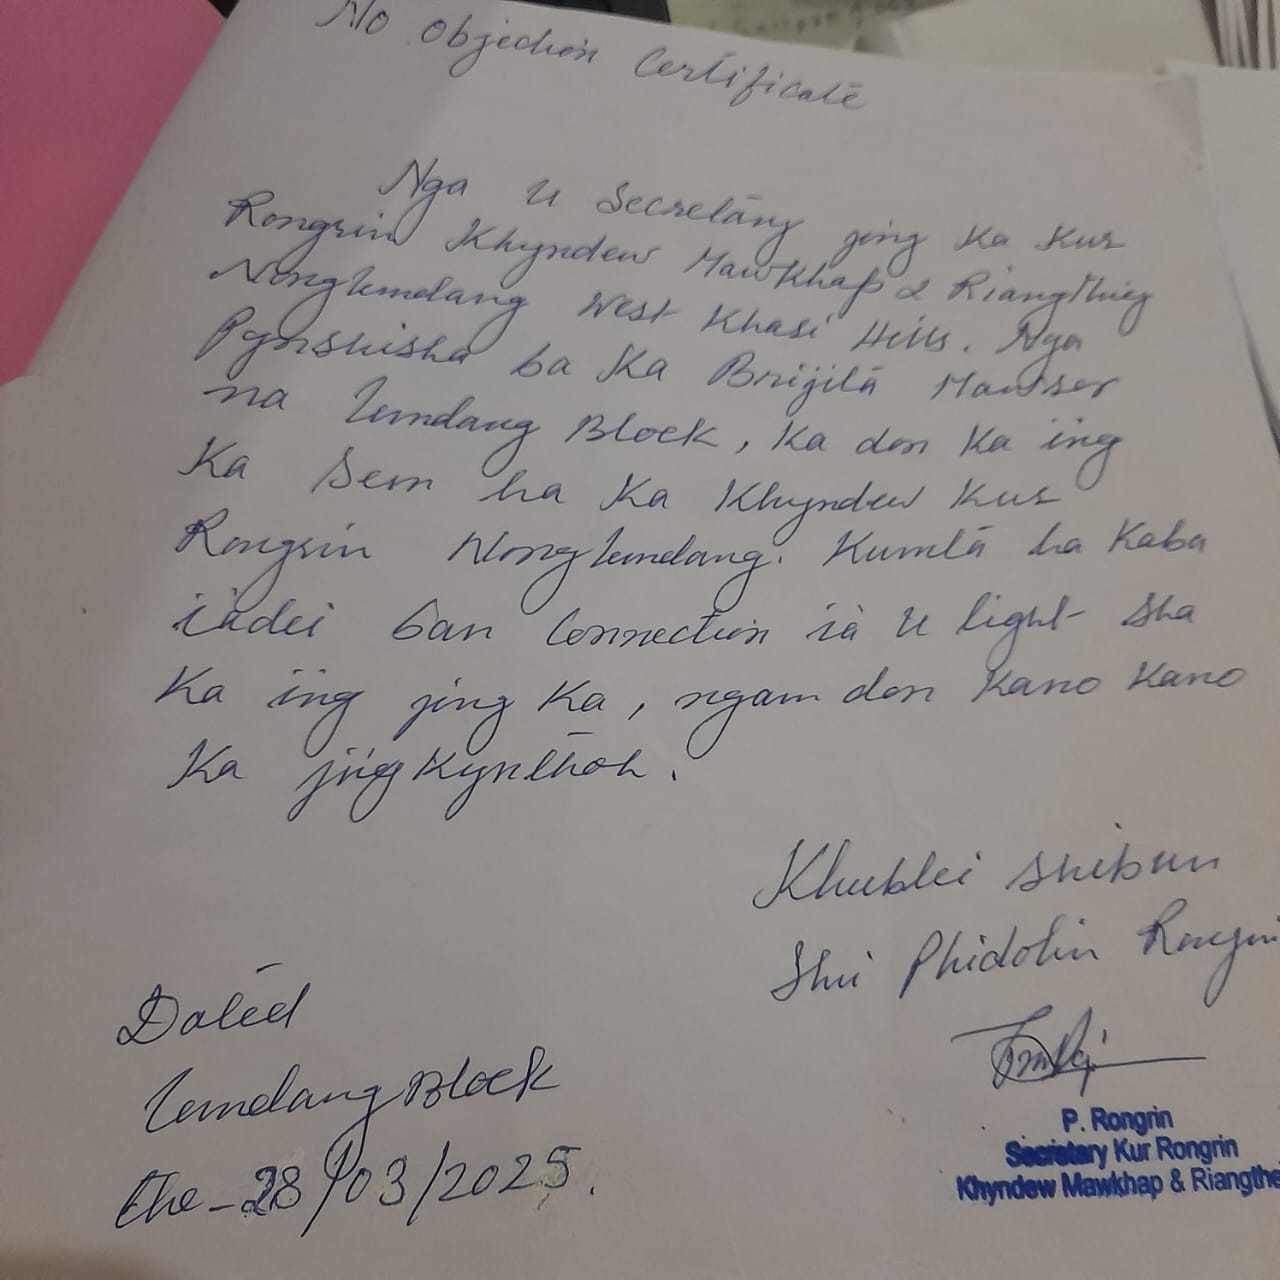 No Objection Certificate
Nga u Secretary jong ka kur
Rongrin Khyndew Mawkhap & Riangthiey
Nonglumdang West Khasi Hills. Nga
Pynshisha ba ka Brijita Mawsor
na Lumdang Block, ka don ka ing
ka sem ha ka Khyndew kur
Rongrin Nonglumdang. Kumta ha kaba
iadei ban Connection ia u light sha
ka iing jong ka, ngam don kano kano
ka jingkynthoh.
Khublei shibun
Shri Phidolin Rongrin
Dated
Lumdang Block
the - 28/03/2025.
P. Rongrin
Secretary Kur Rongrin
Khyndew Mawkhap & Riangthe